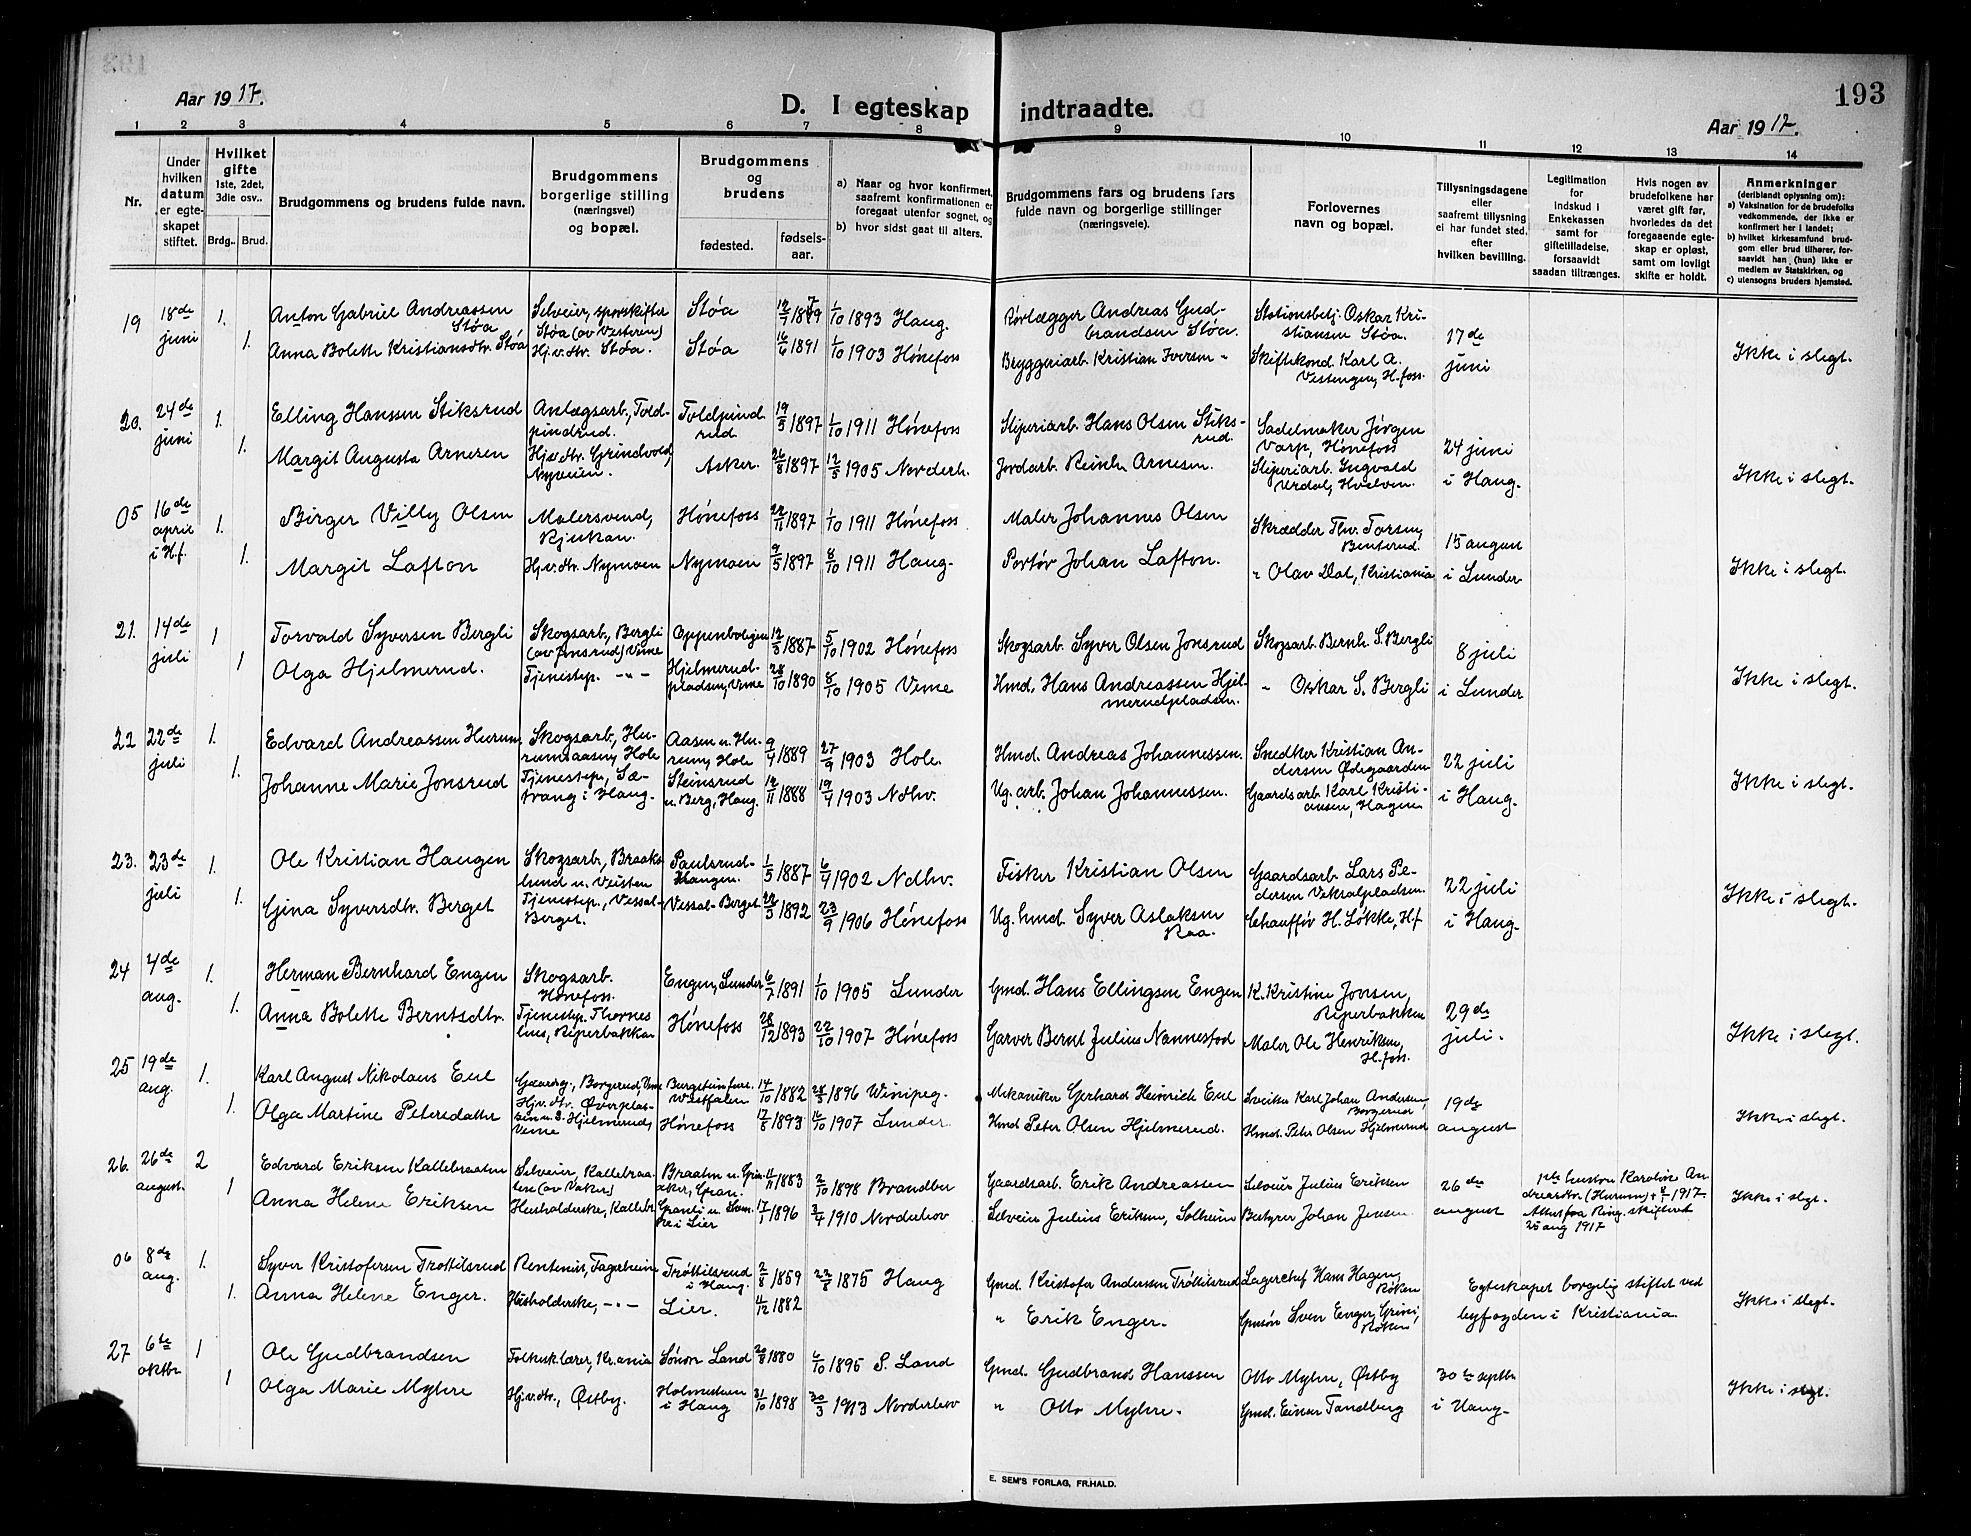 193
Aar 1917.
D. I egteskap indtraadte.
Aar 1917.
1 2 3 4 5 6 7 8 9 10 11 12 13 14
Nr.
Under hvilken datum er egteskapet stiftet.
Hvilket gifte 1ste, 2det, 3die osv..
Brdg.. Brud.
Brudgommens og brudens fulde navn.
Brudgommens borgerlige stilling (næringsvei) og bopæl.
Brudgommens og brudens
fødested.
fødsels-aar.
a) Naar og hvor konfirmert, saafremt konfirmationen er foregaat utenfor sognet, og
b) hvor sidst gaat til alters.
Brudgommens fars og brudens fars fulde navn og borgerlige stillinger (næringsveie).
Forlovernes navn og bopæl.
Tillysningsdagene eller saafremt tillysning ei har fundet sted, efter hvilken bevilling.
Legitimation for Indskud i Enkekassen samt for giftetilladelse, forsaavidt saadan tiltrænges.
Hvis nogen av brudefolkene har været gift før, hvorledes da det foregaaende egteskap er opløst, samt om lovligt skifte er holdt.
Anmerkninger (deriblandt oplysning om):
a) Vaksination for de brudefolks vedkommende, der ikke er konfirmert her i landet;
b) hvilket kirkesamfund brudgom eller brud tilhører, forsaavidt han (hun) ikke er medlem av Statskirken, og
c) utensogns bruders hjemsted.
19 18de juni 1. Anton Gabriel Andreassen Støa Selveier, sporskifter Støa (av Vesteren) Støa 12/7 1879 1/10 1893 Haug. Rørlægger Andreas Gudbrandsen Støa. Stationsbetj. Oskar Kristiansen Støa. 17de juni
1. Anna Bolette Kristiansdtr. Støa Hj.v.dtr. Støa. Støa 16/6 1891 1/10 1903 Hønefoss Bryggeriarb. Kristian Iversen " Skiftekond. Karl A. Vestengen, H.foss. Ikke i slegt.
20. 24de juni 1. Elling Hanssen Stiksrud Anlægsarb., Toldpindrud. Toldpindrud 19/5 1897 1/10 1911 Hønefoss Sliperiarb. Hans Olsen Stiksrud. Sadelmaker Jørgen Varp, Hønefoss 24 juni i Haug.
1. Margit Augusta Arnesen Hj.v.dtr. Grindvold, Nyveien. Asker. 26/8 1897 12/5 1905 Norderh. Jordarb. Reinh. Arnesen. Sliperiarb. Ingvald Urdal, Hvelven. Ikke i slegt.
05 16de april i H.f. 1. Birger Villy Olsen Malersvend, Rjukan. Hønefoss 22/11 1897 1/10 1911 Hønefoss Maler Johannes Olsen Skrædder Thv. Torsen, Benterud. 15 august i Lunder
1. Margit Lafton Hj.v.dtr. Nymoen Nymoen 9/5 1897 8/10 1911 Haug. Portør Johan Lafton. " Olav Dal, Kristiania Ikke i slegt.
21. 14de juli 1 Torvald Syversen Bergli Skogsarb., Bergli (av Jonsrud) Veme Oppenboligen 12/5 1887 5/10 1902 Hønefoss Skogsarb. Syver Olsen Jonsrud Skogsarb. Bernh. S. Bergli 8 juli i Lunder
1 Olga Hjelmerud. Tjenestep. -"- Hjelmerudpladsen, Veme 28/10 1890 8/10 1905 Veme Hmd. Hans Andreassen Hjelmerudpladsen. " Oskar S. Bergli Ikke i slegt.
22 22de juli 1. Edvard Andreassen Hurum Skogsarb., Hurumaasen, Hole Aasen u. Hurum, Hole 9/4 1889 27/9 1903 Hole. Hmd. Andreas Johannessen. Snedker Kristian Andersen Ødegaarden 22 juli i Haug.
1. Johanne Marie Jonsrud Tjenestep., Sætrang i Haug. Steinsrud u. Berg, Haug. 12/11 1888 19/4 1903 Ndhv. Ug. arb. Johan Johannessen. Gaardsarb. Karl Kristiansen, Hagen Ikke i slegt.
23. 23de juli 1. Ole Kristian Haugen Skogsarb., u. Veisten Paulsrud-Haugen. 1/5 1887 6/4 1902 Ndhv. Fisker Kristian Olsen Gaardsarb. Lars Pedersen Veksalpladsen. 22 juli i Haug.
1. Gina Syversdtr. Berget Tjenestep., Vessal-Berget. Vessal-Berget 22/5 1892 23/9 1906 Hønefoss Ug. hmd. Syver Aslaksen Raa. Chauffør H. Løkke, H.f Ikke i slegt.
24 4de aug. 1. Herman Bernhard Engen Skogsarb. Hønefoss. Engen, Lunder 6/7 1891 1/10 1905 Lunder Gmd. Hans Ellingsen Engen K. Kristine Jonsen, Reperbakken 29de juli.
1. Anna Bolette Berntsdtr. Tjenestep. Thornes Reperbakken Hønefoss 28/12 1893 22/10 1907 Hønefoss Garver Bernt Julius Nannestad Maler Ole Henriksen, H.foss. Ikke i slegt.
25 19de aug. 1. Karl August Nikolaus Eul Gaardsg., Borgerud, Veme Westfalen 14/10 1882 28/5 1896 Winipeg. Mekaniker Gerhard Heinrich Eul Karl Johan Andersen, Borgerud 19de august
1. Olga Martine Petersdatter Hj.v.dtr. Hjelmerud, Veme Hønefoss 17/8 1893 16/10 1907 Lunder. Hmd Peter Olsen Hjelmerud. Hmd. Peter Olsen Hjelmerud Ikke i slegt.
26. 26de august. 2 Edvard Eriksen Kallebraaten Selveier, (av Vaker) Braaten u. Gran. 11/11 1883 2/10 1898 Brandbu Gaardsarb. Erik Andreassen Selveier Julius Eriksen 26de august Karoline Andreasdtr. (Hurum) 1917. skifteret 25 aug 1917
1 Anna Helene Eriksen Husholderske, i Lier 17/1 1896 3/4 1910 Norderhov Selveier Julius Eriksen, Solheim Bestyrer Johan Jensen. Ikke i slegt.
06 8de aug. 1. Syver Kristofersen Trøttilsrud Rentenist, Fagerheim Trøttilsrud i Haug. 2/8 1859 22/8 1875 Haug Gmd. Kristofer Anderssen Trøttilsrud Lagerchef Hans Hagen, Røken Egteskapet borgelig stiftet ved byfogden i Kristiania.
1. Anna Helene Enger. Husholderske, -"- Lier. 11/12 1882 " Erik Enger. Gmsøn Sven Enger, Grini, Røken Ikke i slegt.
27 6te oktbr 1 Ole Gudbrandsen Folkesk.lærer, Kr.ania Søndre Land 20/8 1880 6/10 1895 S. Land Gmd. Gudbrand Hanssen Otto Myhre, Østby 30te septbr i Haug.
1 Olga Marie Myhre Hj.v.dtr., Østby. i Haug 31/10 1898 30/3 1913 Norderhov " Otto Myhre. Gmd. Einar Tandberg Ikke i slegt.
E. SEM'S FORLAG, FR.HALD.